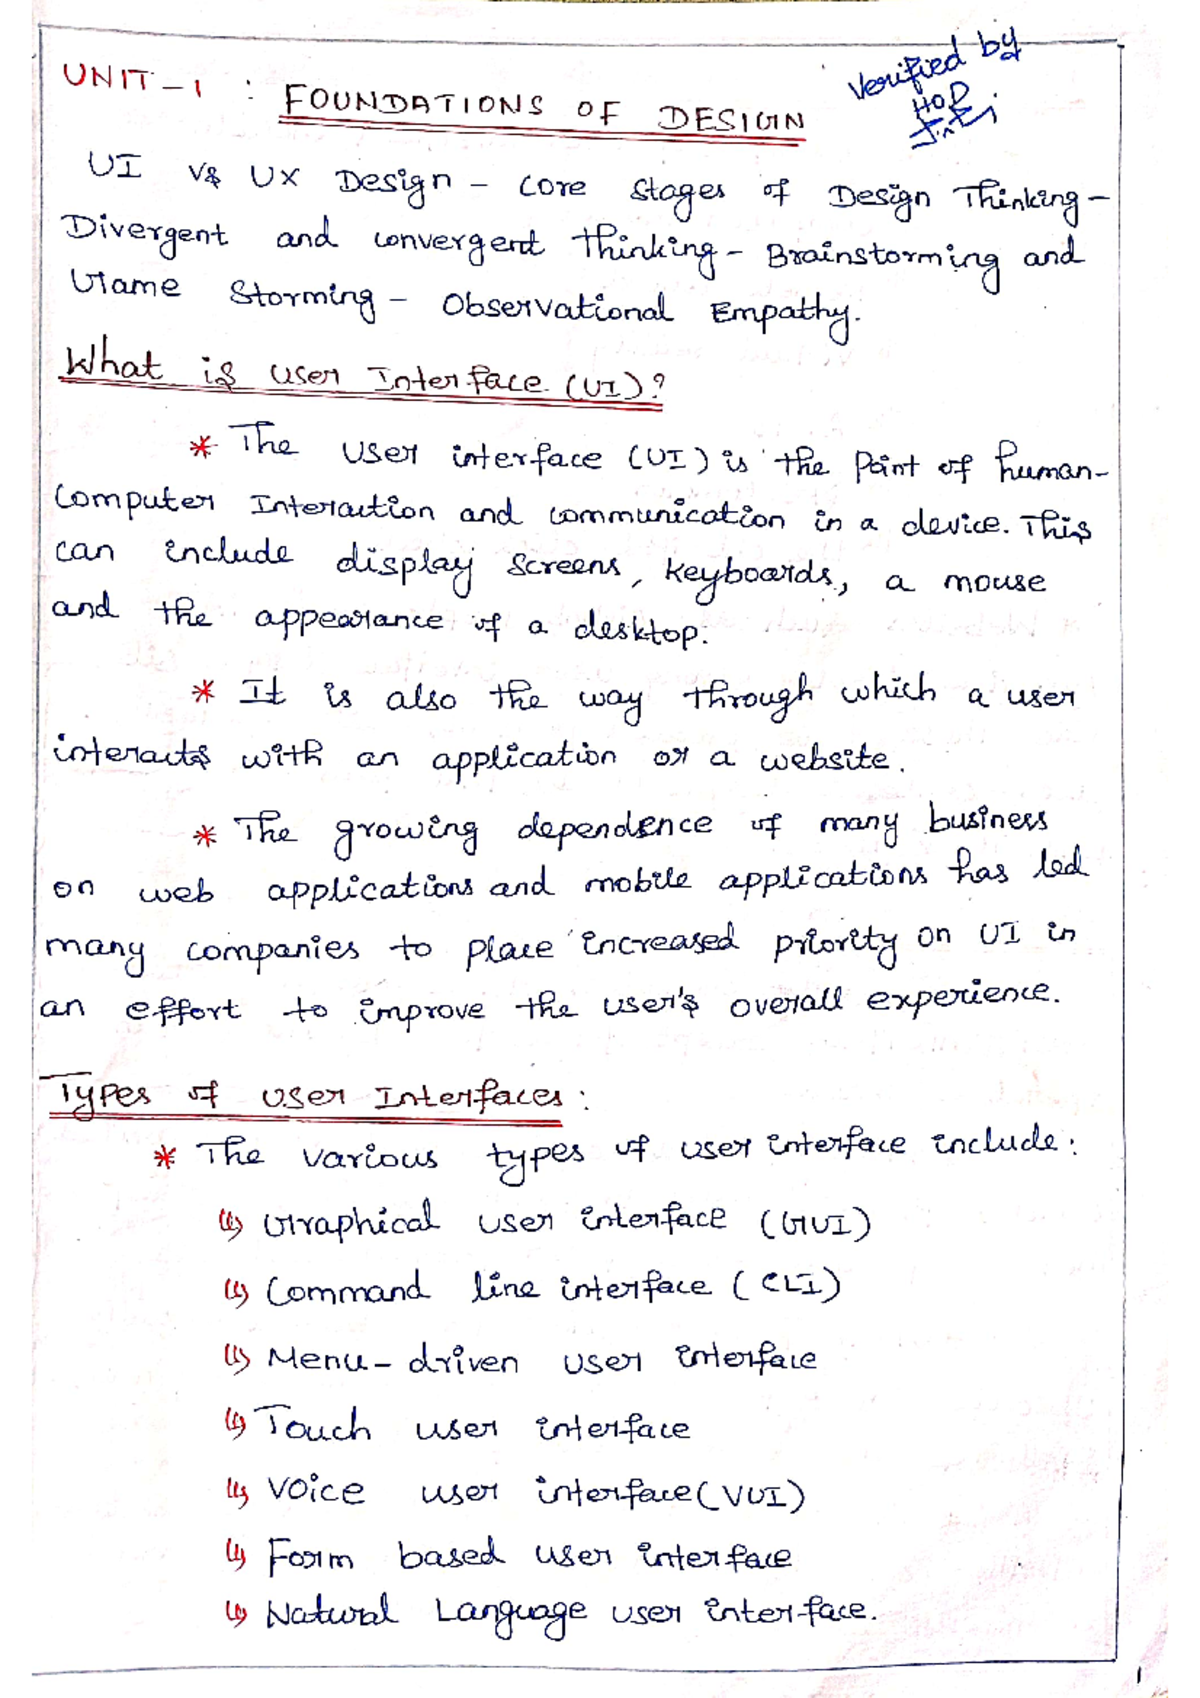 UNIT-1 : FOUNDATIONS OF DESIGN
Verified by
HOD
UI vs UX Design - Core Stages of Design Thinking-
Divergent and convergent thinking - Brainstorming and
Game Storming - Observational Empathy.
What is user Interface (UI)?
* The user interface (UI) is the point of human-
computer Interaction and communication in a device. This
can include display screens, keyboards, a mouse
and the appearance of a desktop.
* It is also the way through which a user
interacts with an application or a website.
* The growing dependence of many business
on web applications and mobile applications has led
many companies to place increased priority on UI in
an effort to improve the user's overall experience.
Types of user Interfaces:
* The various types of user interface include:
Graphical user interface (GUI)
Command line interface (CLI)
Menu-driven user interface
Touch user interface
Voice user interface (VUI)
Form based user interface
Natural Language user interface.
1